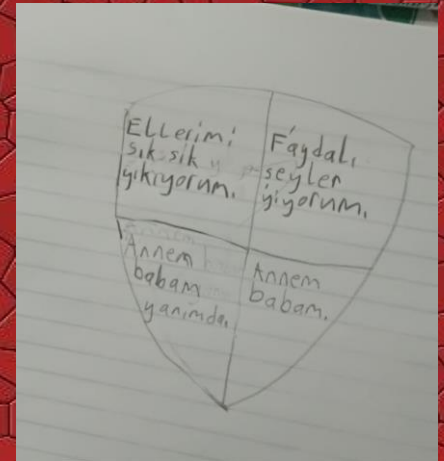 Ellerimi
sık sık
yıkıyorum.
Faydalı
şeyler
yiyorum.
Annem
babam
yanımda.
Annem
babam.